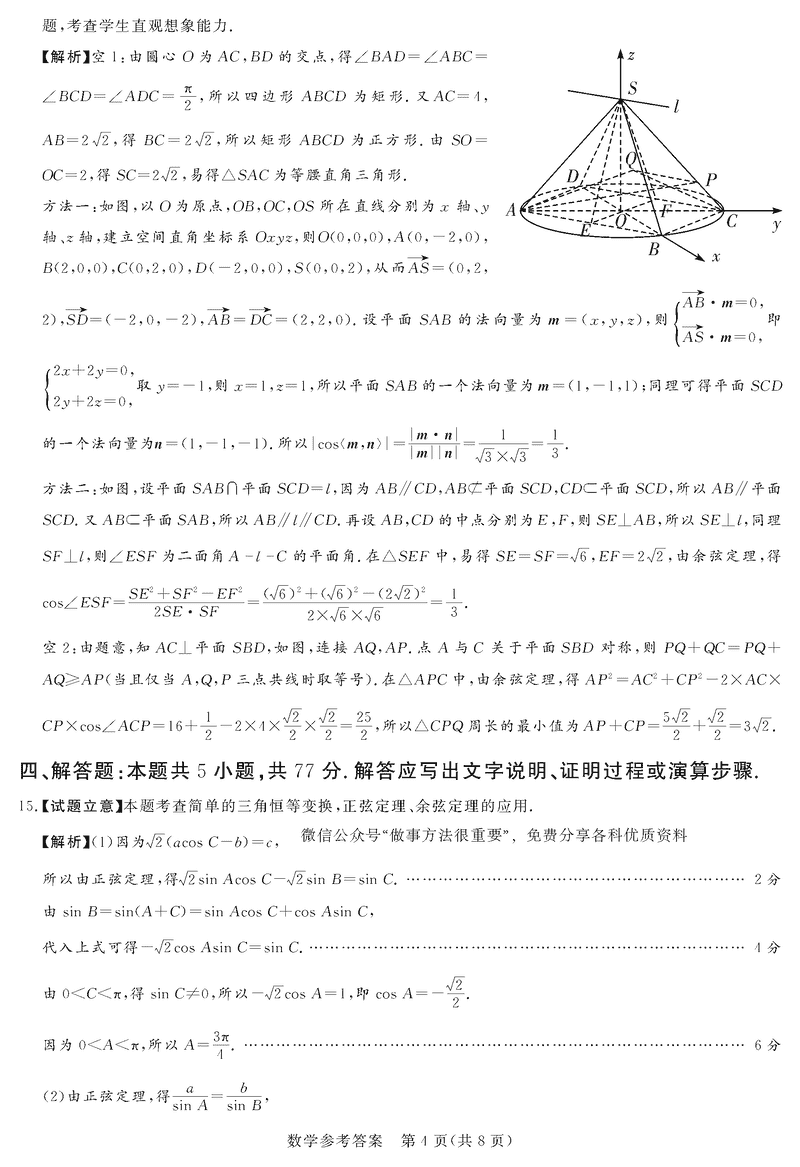 题,考查学生直观想象能力.
【解析】空 1:由圆心 O 为 AC,BD 的交点,得∠BAD=∠ABC=
∠BCD=∠ADC=π/2,所以四边形 ABCD 为矩形.又AC=4,
AB=2√2,得 BC=2√2,所以矩形 ABCD 为正方形.由 SO=
OC=2,得 SC=2√2,易得△SAC为等腰直角三角形.
方法一:如图,以 O为原点,OB,OC,OS 所在直线分别为 x 轴、y
轴、z 轴,建立空间直角坐标系 Oxyz,则O(0,0,0),A(0,-2,0),
B(2,0,0),C(0,2,0),D(-2,0,0),S(0,0,2),从而AS→=(0,2,
z
S
l
Q
D
P
A
E
O
F
C
y
B
x
2),SD→=(-2,0,-2),AB→=DC→=(2,2,0).设平面 SAB 的法向量为 m=(x,y,z),则{AB→·m=0, AS→·m=0,即
{2x+2y=0, 2y+2z=0,取 y=-1,则 x=1,z=1,所以平面 SAB 的一个法向量为m=(1,-1,1);同理可得平面 SCD
的一个法向量为n=(1,-1,-1).所以|cos⟨m,n⟩|=|m·n|/|m||n|=1/(√3×√3)=1/3.
方法二:如图,设平面 SAB⋂平面 SCD=l,因为 AB∥CD,AB⊄平面 SCD,CD⊂平面 SCD,所以 AB∥平面
SCD.又 AB⊂平面 SAB,所以 AB∥l∥CD.再设 AB,CD 的中点分别为 E,F,则 SE⊥AB,所以 SE⊥l,同理
SF⊥l,则∠ESF 为二面角 A-l-C 的平面角.在△SEF 中,易得 SE=SF=√6,EF=2√2,由余弦定理,得
cos∠ESF=(SE²+SF²-EF²)/(2SE·SF)=((√6)²+(√6)²-(2√2)²)/(2×√6×√6)=1/3.
空 2:由题意,知 AC⊥平面 SBD,如图,连接 AQ,AP.点 A 与 C 关于平面 SBD 对称,则 PQ+QC=PQ+
AQ≥AP(当且仅当 A,Q,P 三点共线时取等号).在△APC 中,由余弦定理,得 AP²=AC²+CP²-2×AC×
CP×cos∠ACP=16+1/2-2×4×√2/2×√2/2=25/2,所以△CPQ 周长的最小值为 AP+CP=5√2/2+√2/2=3√2.
四、解答题:本题共 5 小题,共 77 分.解答应写出文字说明、证明过程或演算步骤.
15.【试题立意】本题考查简单的三角恒等变换,正弦定理、余弦定理的应用.
【解析】(1)因为√2(acos C-b)=c, 微信公众号“做事方法很重要”,免费分享各科优质资料
所以由正弦定理,得√2sin Acos C-√2sin B=sin C. …… 2 分
由 sin B=sin(A+C)=sin Acos C+cos Asin C,
代入上式可得-√2cos Asin C=sin C. …… 4 分
由 0<C<π,得 sin C≠0,所以-√2cos A=1,即 cos A=-√2/2.
因为 0<A<π,所以 A=3π/4. …… 6 分
(2)由正弦定理,得a/sin A=b/sin B,
数学参考答案 第 4 页(共 8 页)